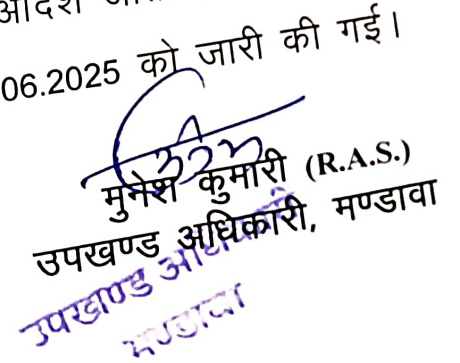 आदेश
06.2025 को जारी की गई।
मुनेश कुमारी (R.A.S.)
उपखण्ड अधिकारी, मण्डावा
उपखण्ड अधिकारी
मण्डावा